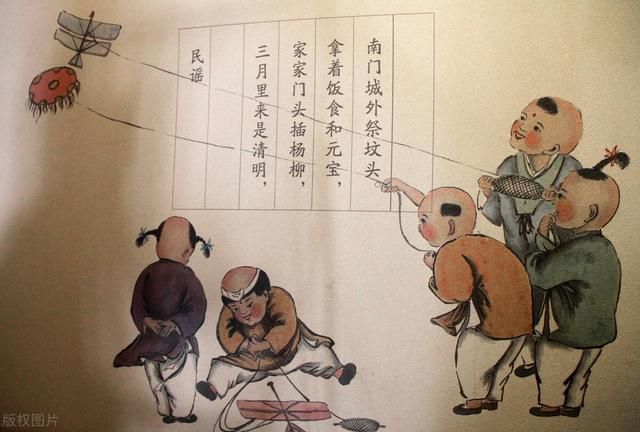 民谣
三月里来是清明，
家家门头插杨柳，
拿着饭食和元宝，
南门城外祭坟头
版权图片